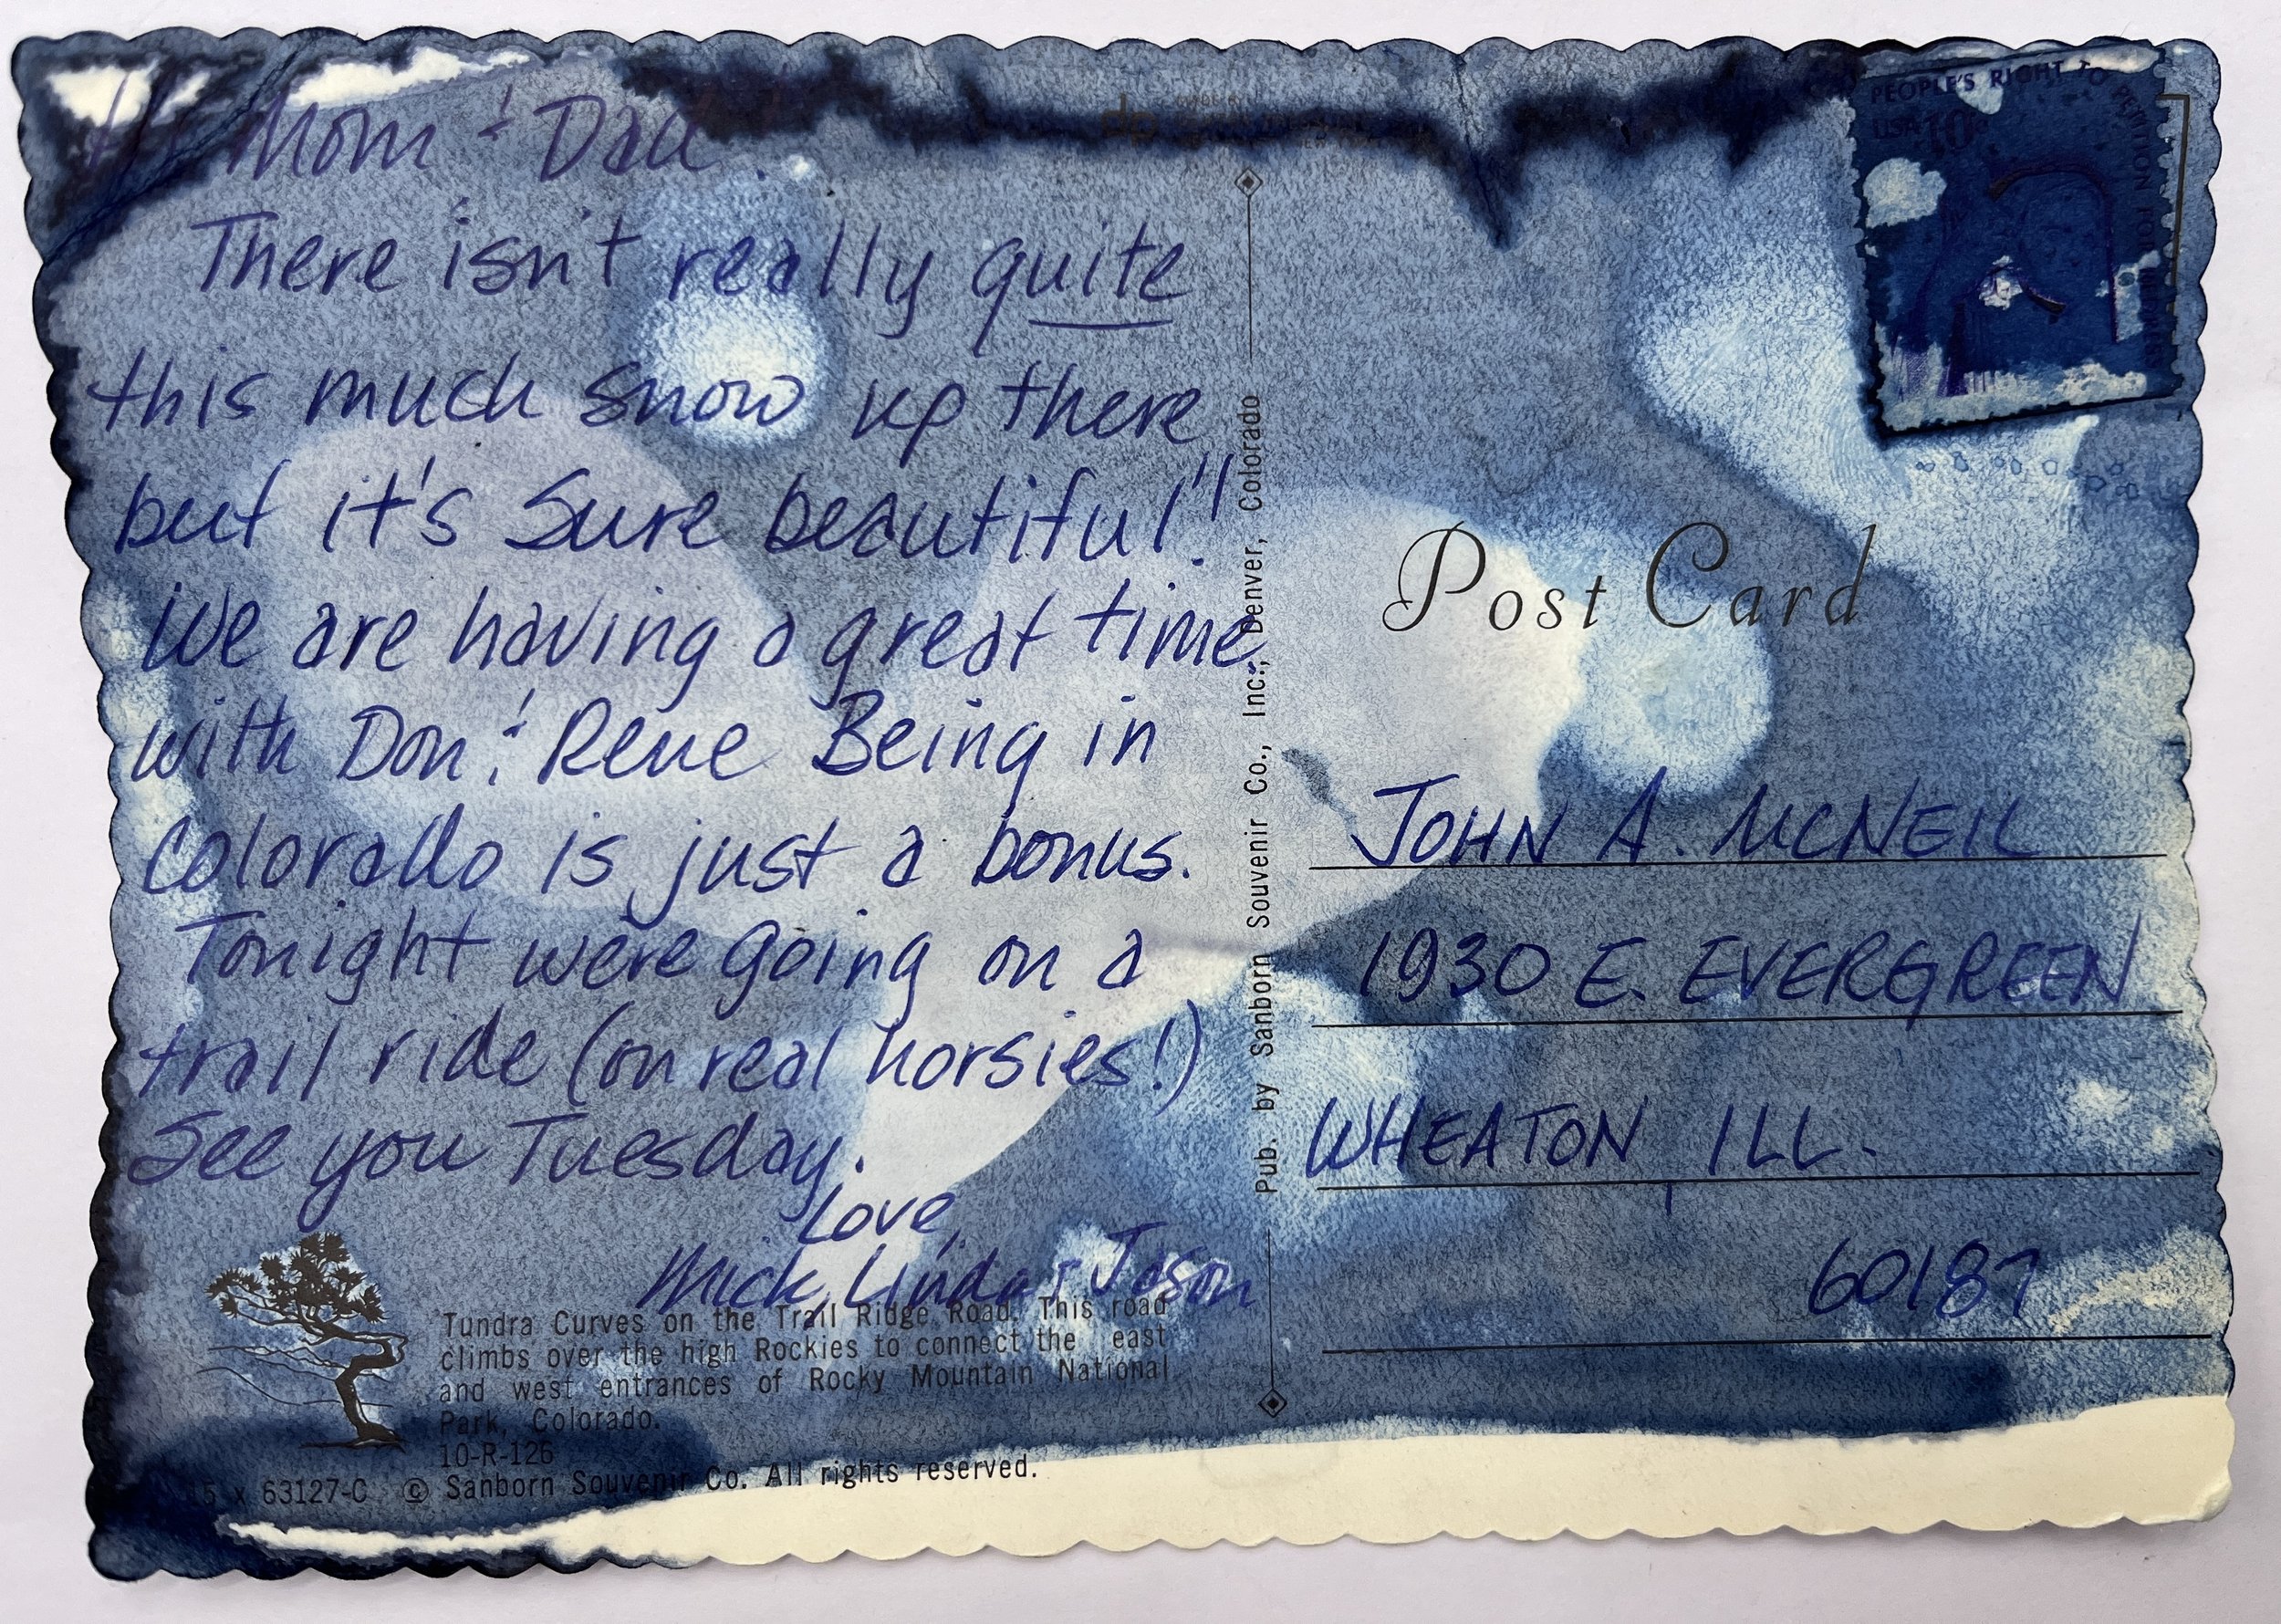 Hi Mom & Dad
There isn't really quite
this much snow up there
but it's sure beautiful!!
We are having a great time
with Don & Rene Being in
Colorado is just a bonus.
Tonight were going on a
trail ride (on real horsies!)
See you Tuesday.
Love,
Mick, Linda & Jason
Tundra Curves on the Trail Ridge Road. This road
climbs over the high Rockies to connect the east
and west entrances of Rocky Mountain National
Park, Colorado.
10-R-126
x 63127-C © Sanborn Souvenir Co. All rights reserved.
Pub. by Sanborn Souvenir Co., Inc., Denver, Colorado
PEOPLE'S RIGHT TO PETITION FOR
USA 10c
Post Card
JOHN A. MCNEIL
1930 E. EVERGREEN
WHEATON ILL.
60187